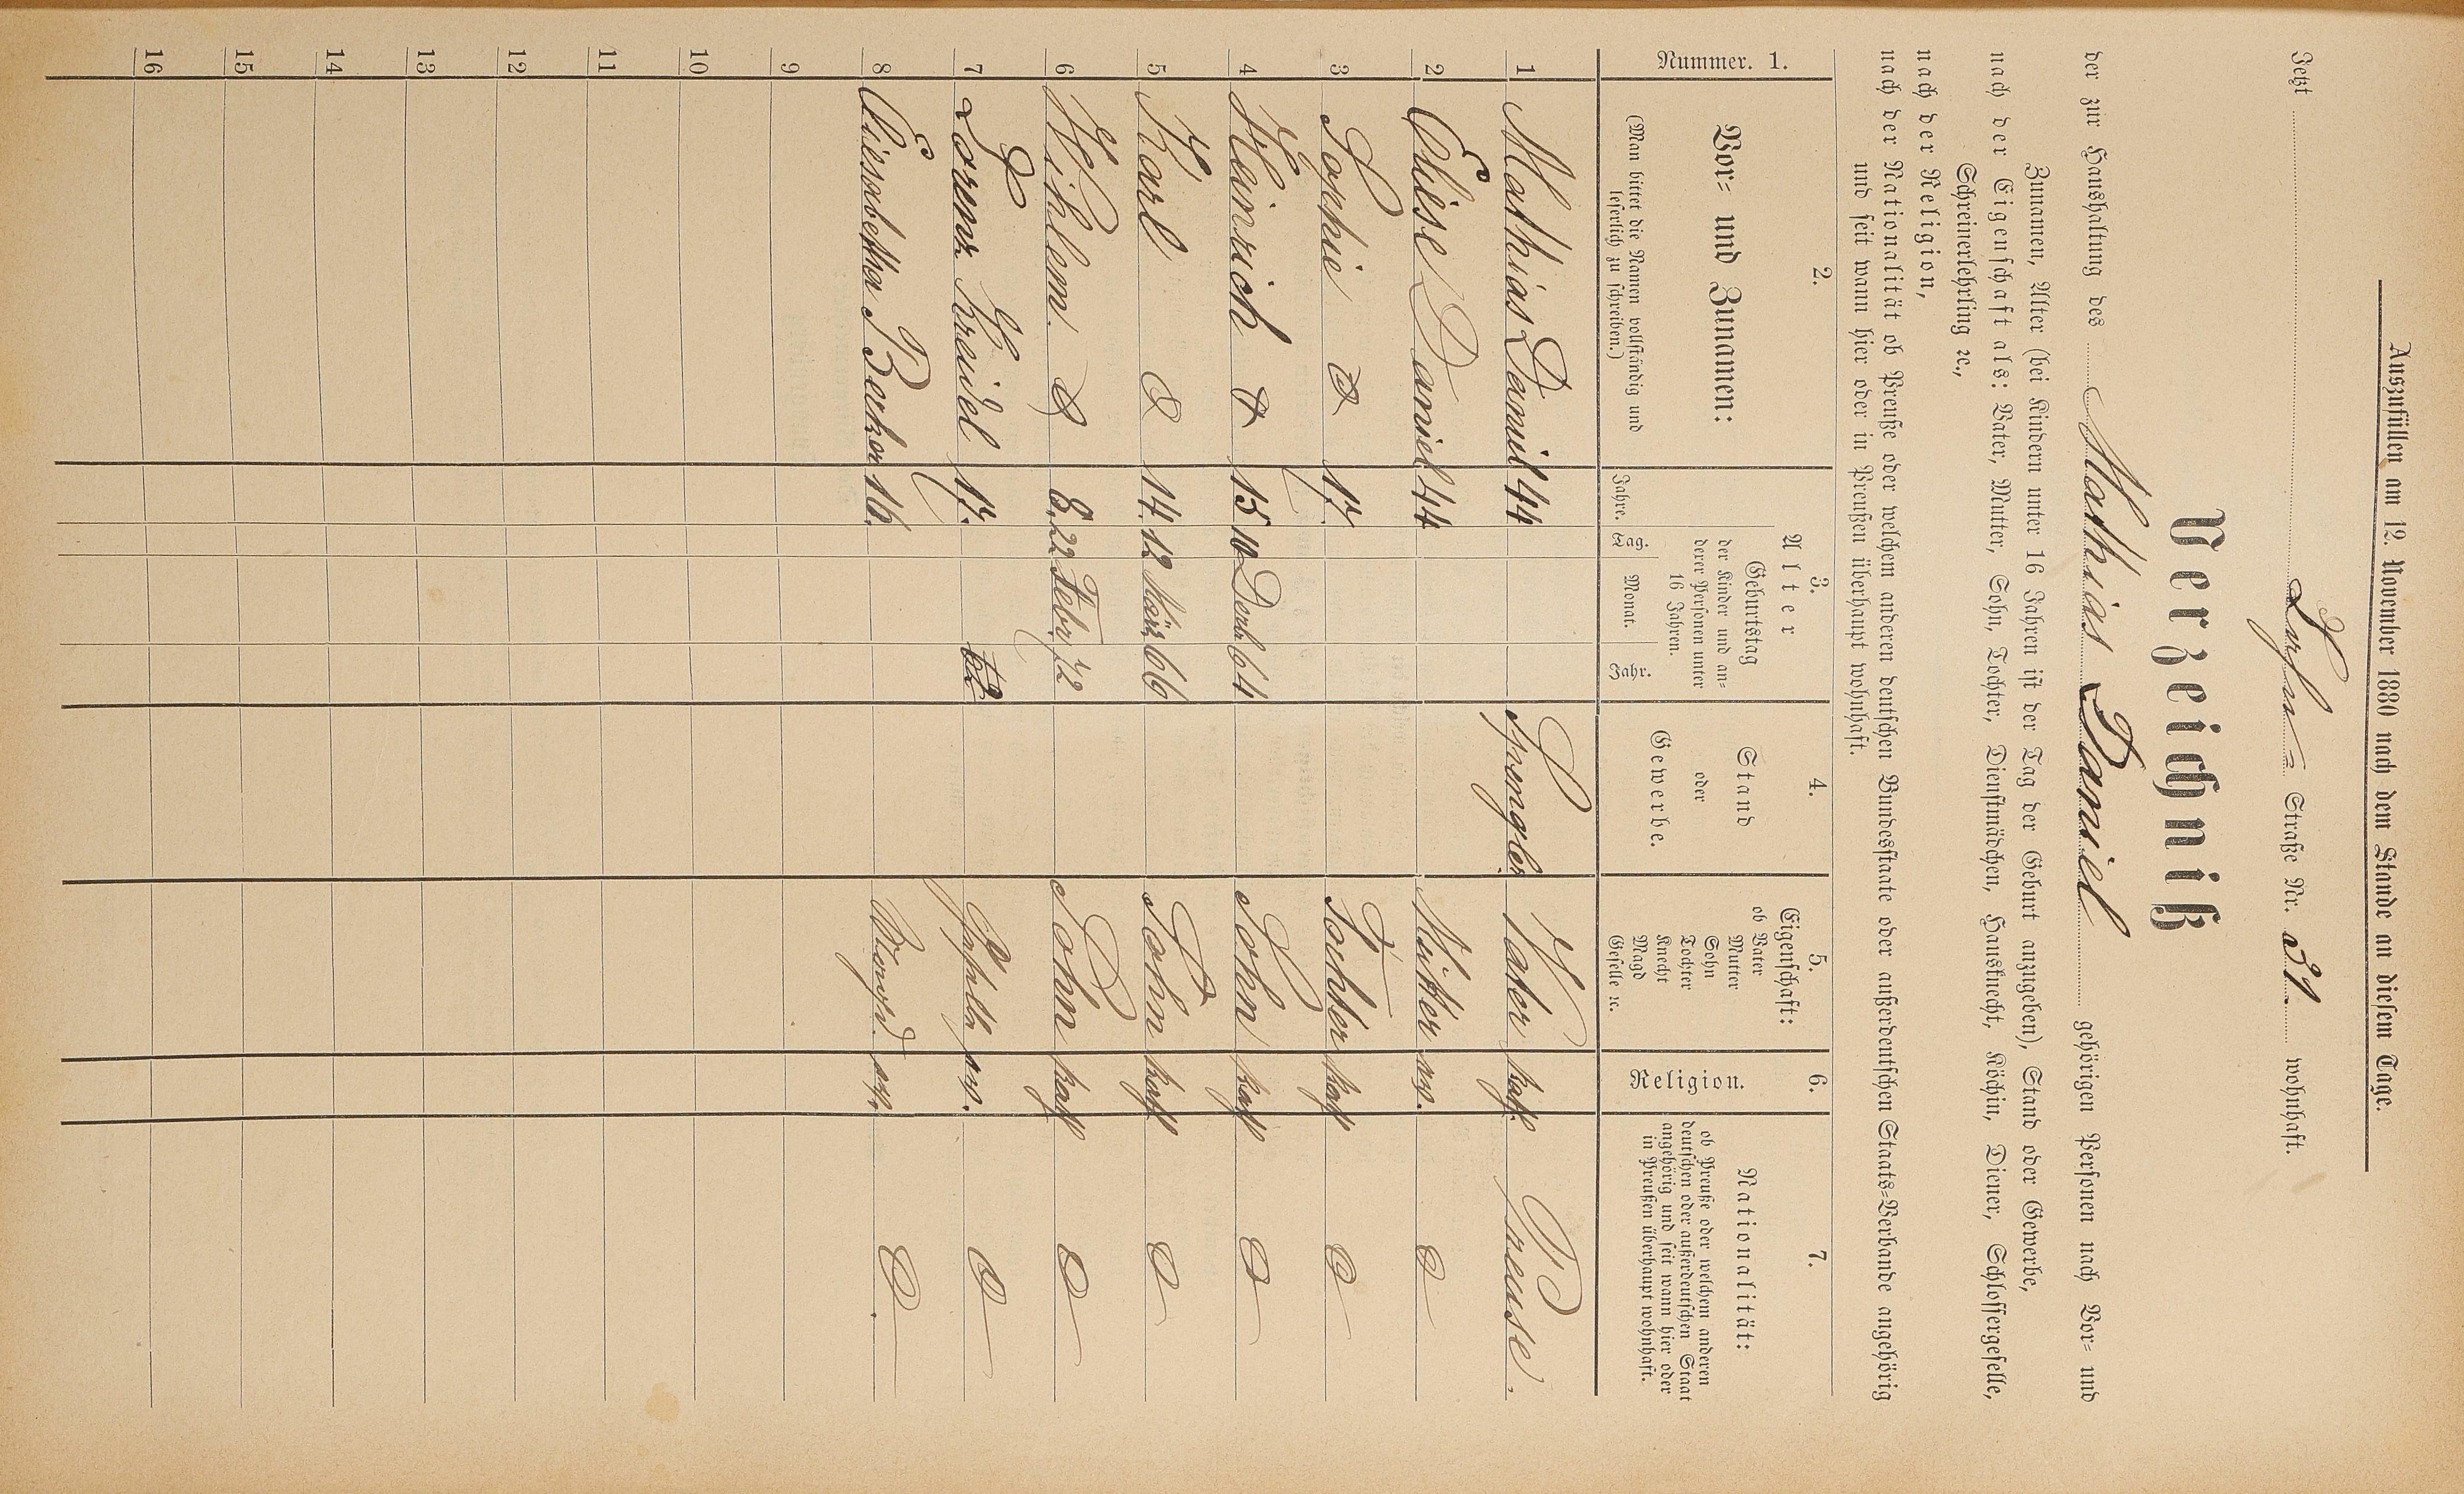 Auszufüllen am 12. November 1880 nach dem Stande an diesem Tage.
Jetzt Lehr= Straße Nr. 31. wohnhaft.
Verzeichniß
der zur Haushaltung des Mathias Daniel gehörigen Personen nach Vor= und
Zunamen, Alter (bei Kindern unter 16 Jahren ist der Tag der Geburt anzugeben), Stand oder Gewerbe,
nach der Eigenschaft als: Vater, Mutter, Sohn, Tochter, Dienstmädchen, Hausknecht, Köchin, Diener, Schlossergeselle,
Schreinerlehrling ꝛc.,
nach der Religion,
nach der Nationalität ob Preuße oder welchem anderen deutschen Bundesstaate oder außerdeutschen Staats=Verbande angehörig
und seit wann hier oder in Preußen überhaupt wohnhaft.
Nummer. 1.
2.
Vor= und Zunamen:
(Man bittet die Namen vollständig und
leserlich zu schreiben.)
3.
Alter
Geburtstag
der Kinder und an=
derer Personen unter
16 Jahren.
Jahre. Tag. Monat. Jahr.
4.
Stand
oder
Gewerbe.
5.
Eigenschaft:
ob Vater
Mutter
Sohn
Tochter
Knecht
Magd
Geselle ꝛc.
6.
Religion.
7.
Nationalität:
ob Preuße oder welchem anderen
deutschen oder außerdeutschen Staat
angehörig und seit wann hier oder
in Preußen überhaupt wohnhaft.
1 Mathias Daniel 44 Spengler Vater kath. Preuse.
2 Elise Daniel 44 Mutter ev.
3 Sophie 17. Tochter kath
4 Heinrich 15 10 Decb. 64 Sohn kath
5 Karl 14. 12 März 66 Sohn kath
6 Wihlem. 8. 22 Febr. 72 Sohn kath
7 Lorenz Kreidel 17. ev.
8 Eliesabetha Becker 16.
9
10
11
12
13
14
15
16